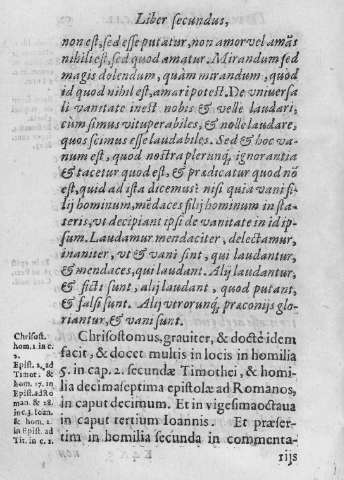 Liber secundus,
non est, sed esse putatur, non amor vel amās
nihili est, sed quod amatur. Mirandum sed
magis dolendum, quàm mirandum, quod
id quod nihil est, amari potest. De vniuersa
li vanitate inest nobis & velle laudari,
cùm simus vituperabiles, & nolle laudare,
quos scimus esse laudabiles. Sed & hoc va-
num est, quod nostra plerunq; ignorantia
& tacetur quod est, & prædicatur quod nō
est, quid ad ista dicemus: nisi quia vani fi-
lij hominum, mēdaces filij hominum in sta-
teris, vt decipiant ipsi de vanitate in id ip-
sum. Laudamur mendaciter, delectamur,
inaniter, vt & vani sint, qui laudantur,
& mendaces, qui laudant. Alij laudantur,
& ficti sunt, alij laudant, quod putant,
& falsi sunt. Alij vtrorunq; præconijs glo-
riantur, & vani sunt.
Chrisost.
hom. 1. in c.
2.
Epist. 2. ad
Timot. &
hom. 17. in
Epist. ad Ro
man. & 28.
in c. 3. Ioan.
& hom. 2.
in Epist. ad
Tit. in c. 1.
Chrisostomus, grauiter, & doctè idem
facit, & docet multis in locis in homilia
5. in cap. 2. secundæ Timothei, & homi-
lia decimaseptima epistolæ ad Romanos,
in caput decimum. Et in vigesimaoctaua
in caput tertium Ioannis. Et præser-
tim in homilia secunda in commenta-
rijs